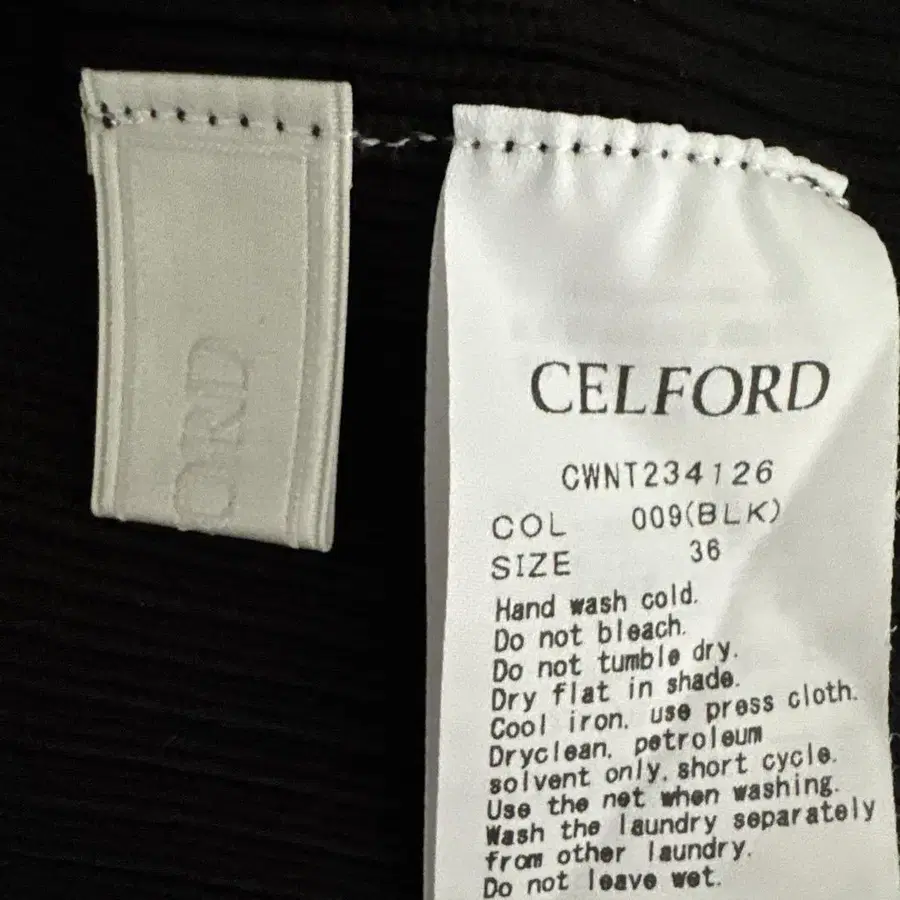 ORD
CELFORD
CWNT234126
COL 009(BLK)
SIZE 36
Hand wash cold.
Do not bleach.
Do not tumble dry.
Dry flat in shade.
Cool iron, use press cloth.
Dryclean, petroleum
solvent only, short cycle.
Use the net when washing.
Wash the laundry separately
from other laundry.
Do not leave wet.